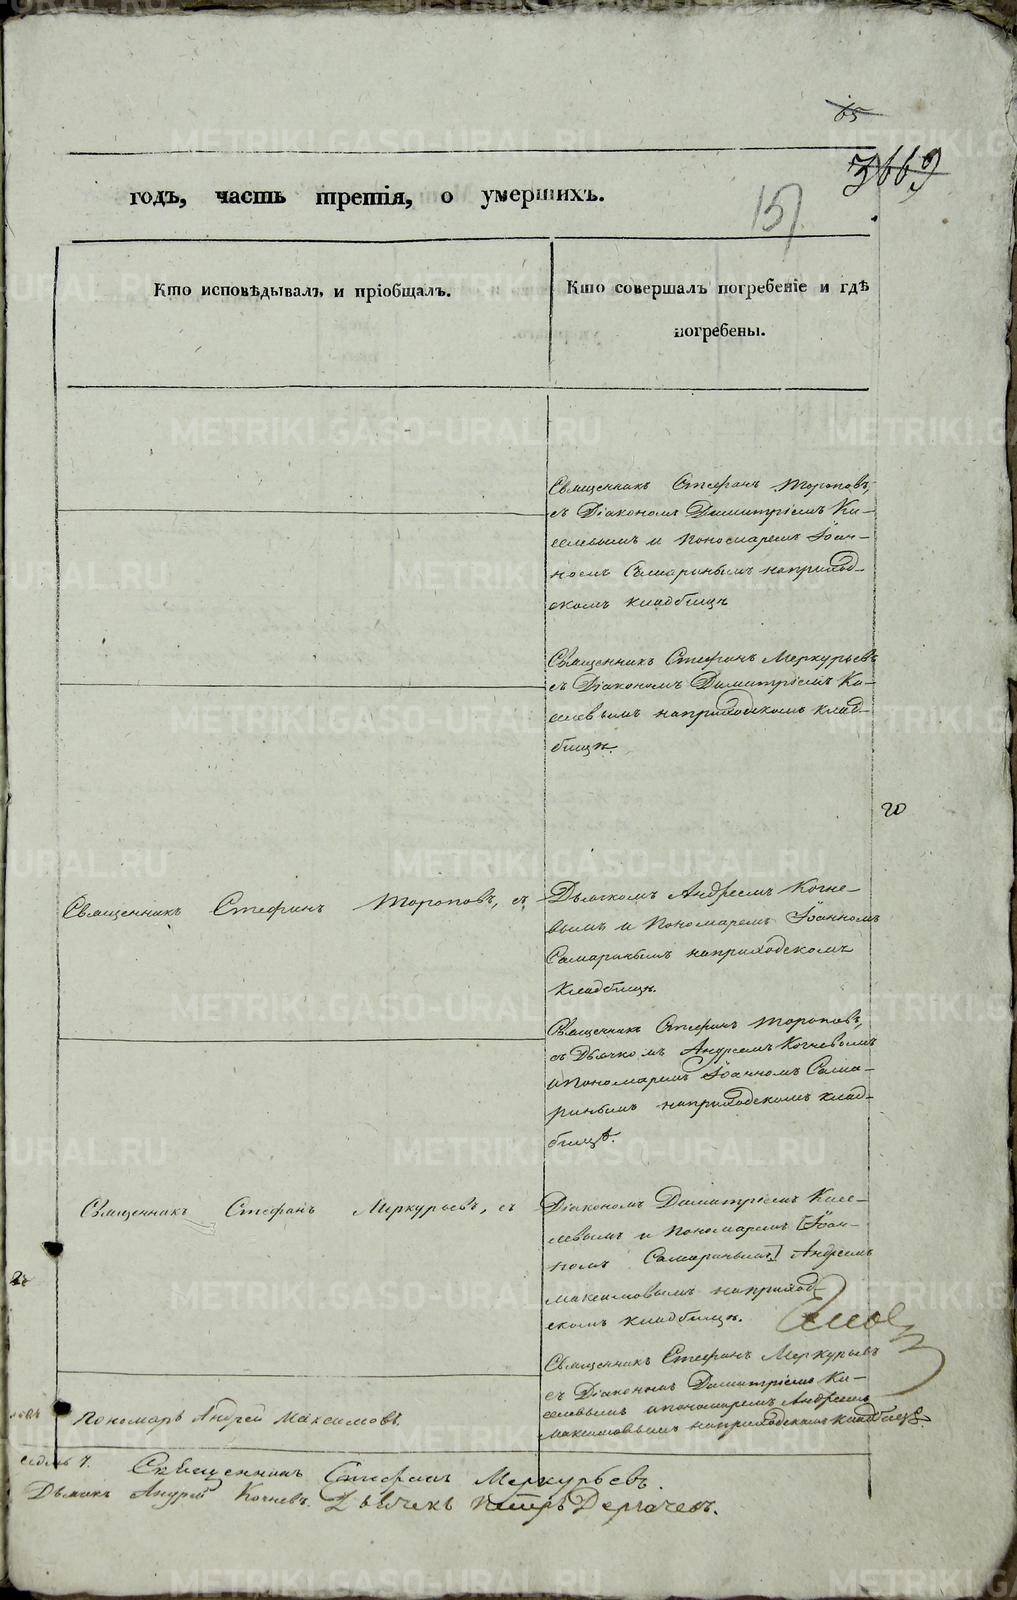 65
3669
годъ, часть третія, о умершихъ.
157
Кто исповѣдывалъ и пріобщалъ.
Кто совершалъ погребеніе и гдѣ
погребены.
Священникъ Стефанъ Тороповъ,
съ Діакономъ Димитріемъ Ки-
селевымъ и пономаремъ Іоан-
номъ Самаринымъ наприход-
скомъ кладбищѣ
Священникъ Стефанъ Меркурьевъ
съ Діакономъ Димитріемъ Ки-
селевымъ наприходскомъ клад-
бищѣ.
20
Священникъ Стефанъ Тороповъ, съ
Дьячкомъ Андреемъ Кочне-
вымъ и пономаремъ Іоанномъ
Самаринымъ наприходскомъ
кладбищѣ.
Священникъ Стефанъ Тороповъ,
съ Дьячкомъ Андреемъ Кочневымъ
ипономаремъ Іоанномъ Сама-
ринымъ наприходскомъ клад-
бищѣ.
Священникъ Стефанъ Меркурьевъ, съ
Діакономъ Димитріемъ Кисе-
левымъ и пономаремъ [Іоан-
номъ Самаринымъ] Андреемъ
Максимовымъ наприход-
скомъ кладбищѣ.
Священникъ Стефанъ Меркурьевъ
съ Діакономъ Димитріемъ Ки-
селевымъ ипономаремъ Андреемъ
Максимовымъ наприходскомъ кладбищѣ.
пономарь Андрей Максимовъ.
Священникъ Стефанъ Меркурьевъ.
Дьячекъ Андрей Кочневъ. Дьячекъ Петръ Дергачевъ.